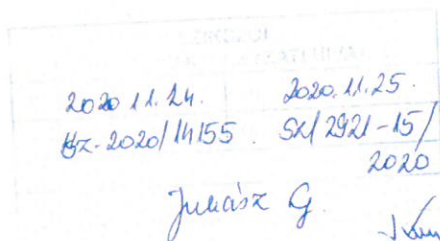 2020 11. 24. 2020. 11. 25.
-2020/14155 SZ/2921-15/
2020
Juhász G.